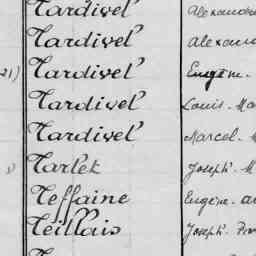 Tardivel Alexandre
Tardivel Alexan
21) Tardivel Eugène.
Tardivel Louis. Ma
Tardivel Marcel. M
Tarlet Joseph. M
Teffaine Eugène. a
Teillais Joseph. Fra